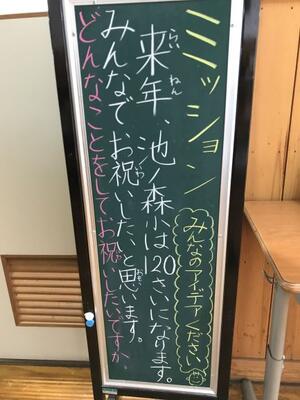 ミッション
みんなのアイデアください
来年、池ノ森小は120さいになります。
らいねん
みんなでお祝いしたいと思います。
いわ
おも
どんなことをしてお祝いしたいですか